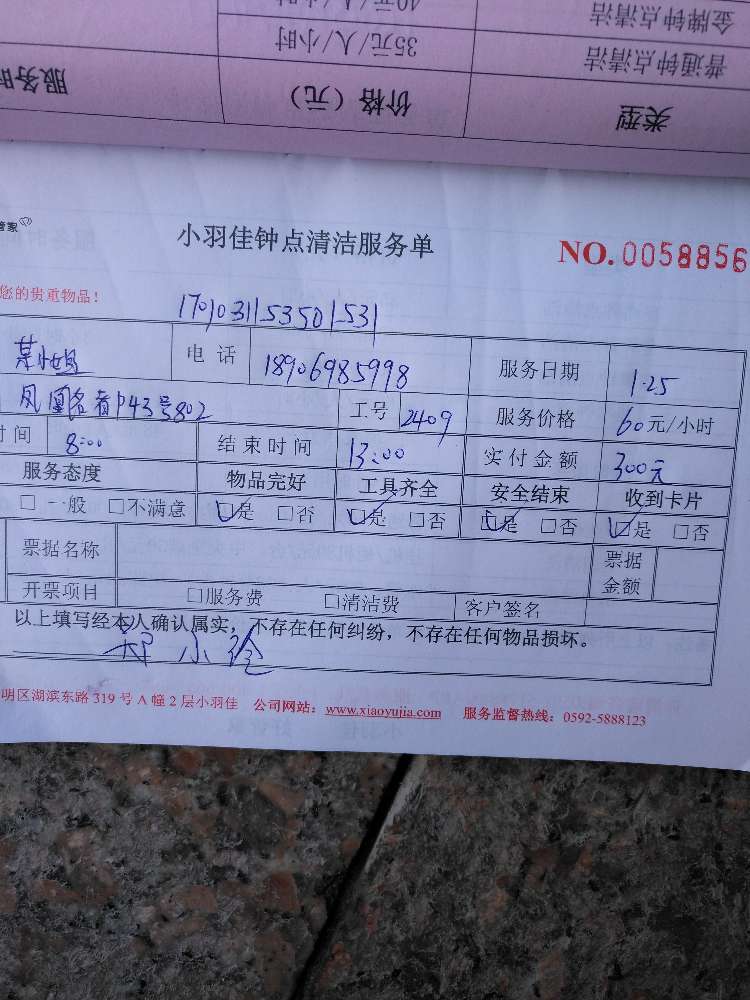 金牌钟点清洁 40元/人/小时
普通钟点清洁 35元/人/小时
类型 价格（元） 服务时
管家
小羽佳钟点清洁服务单
NO.0058856
您的贵重物品！
1701031153501531
小姐 电话 18906985998 服务日期 1.25
凤凰名都 43号802 工号 2409 服务价格 60元/小时
时间 8:00 结束时间 13:00 实付金额 300元
服务态度 物品完好 工具齐全 安全结束 收到卡片
□一般 □不满意 □是 □否 □是 □否 □是 □否 □是 □否
票据名称 票据金额
开票项目 □服务费 □清洁费 客户签名
以上填写经本人确认属实，不存在任何纠纷，不存在任何物品损坏。
小
明区湖滨东路319号A幢2层小羽佳 公司网站：www.xiaoyujia.com 服务监督热线：0592-5888123